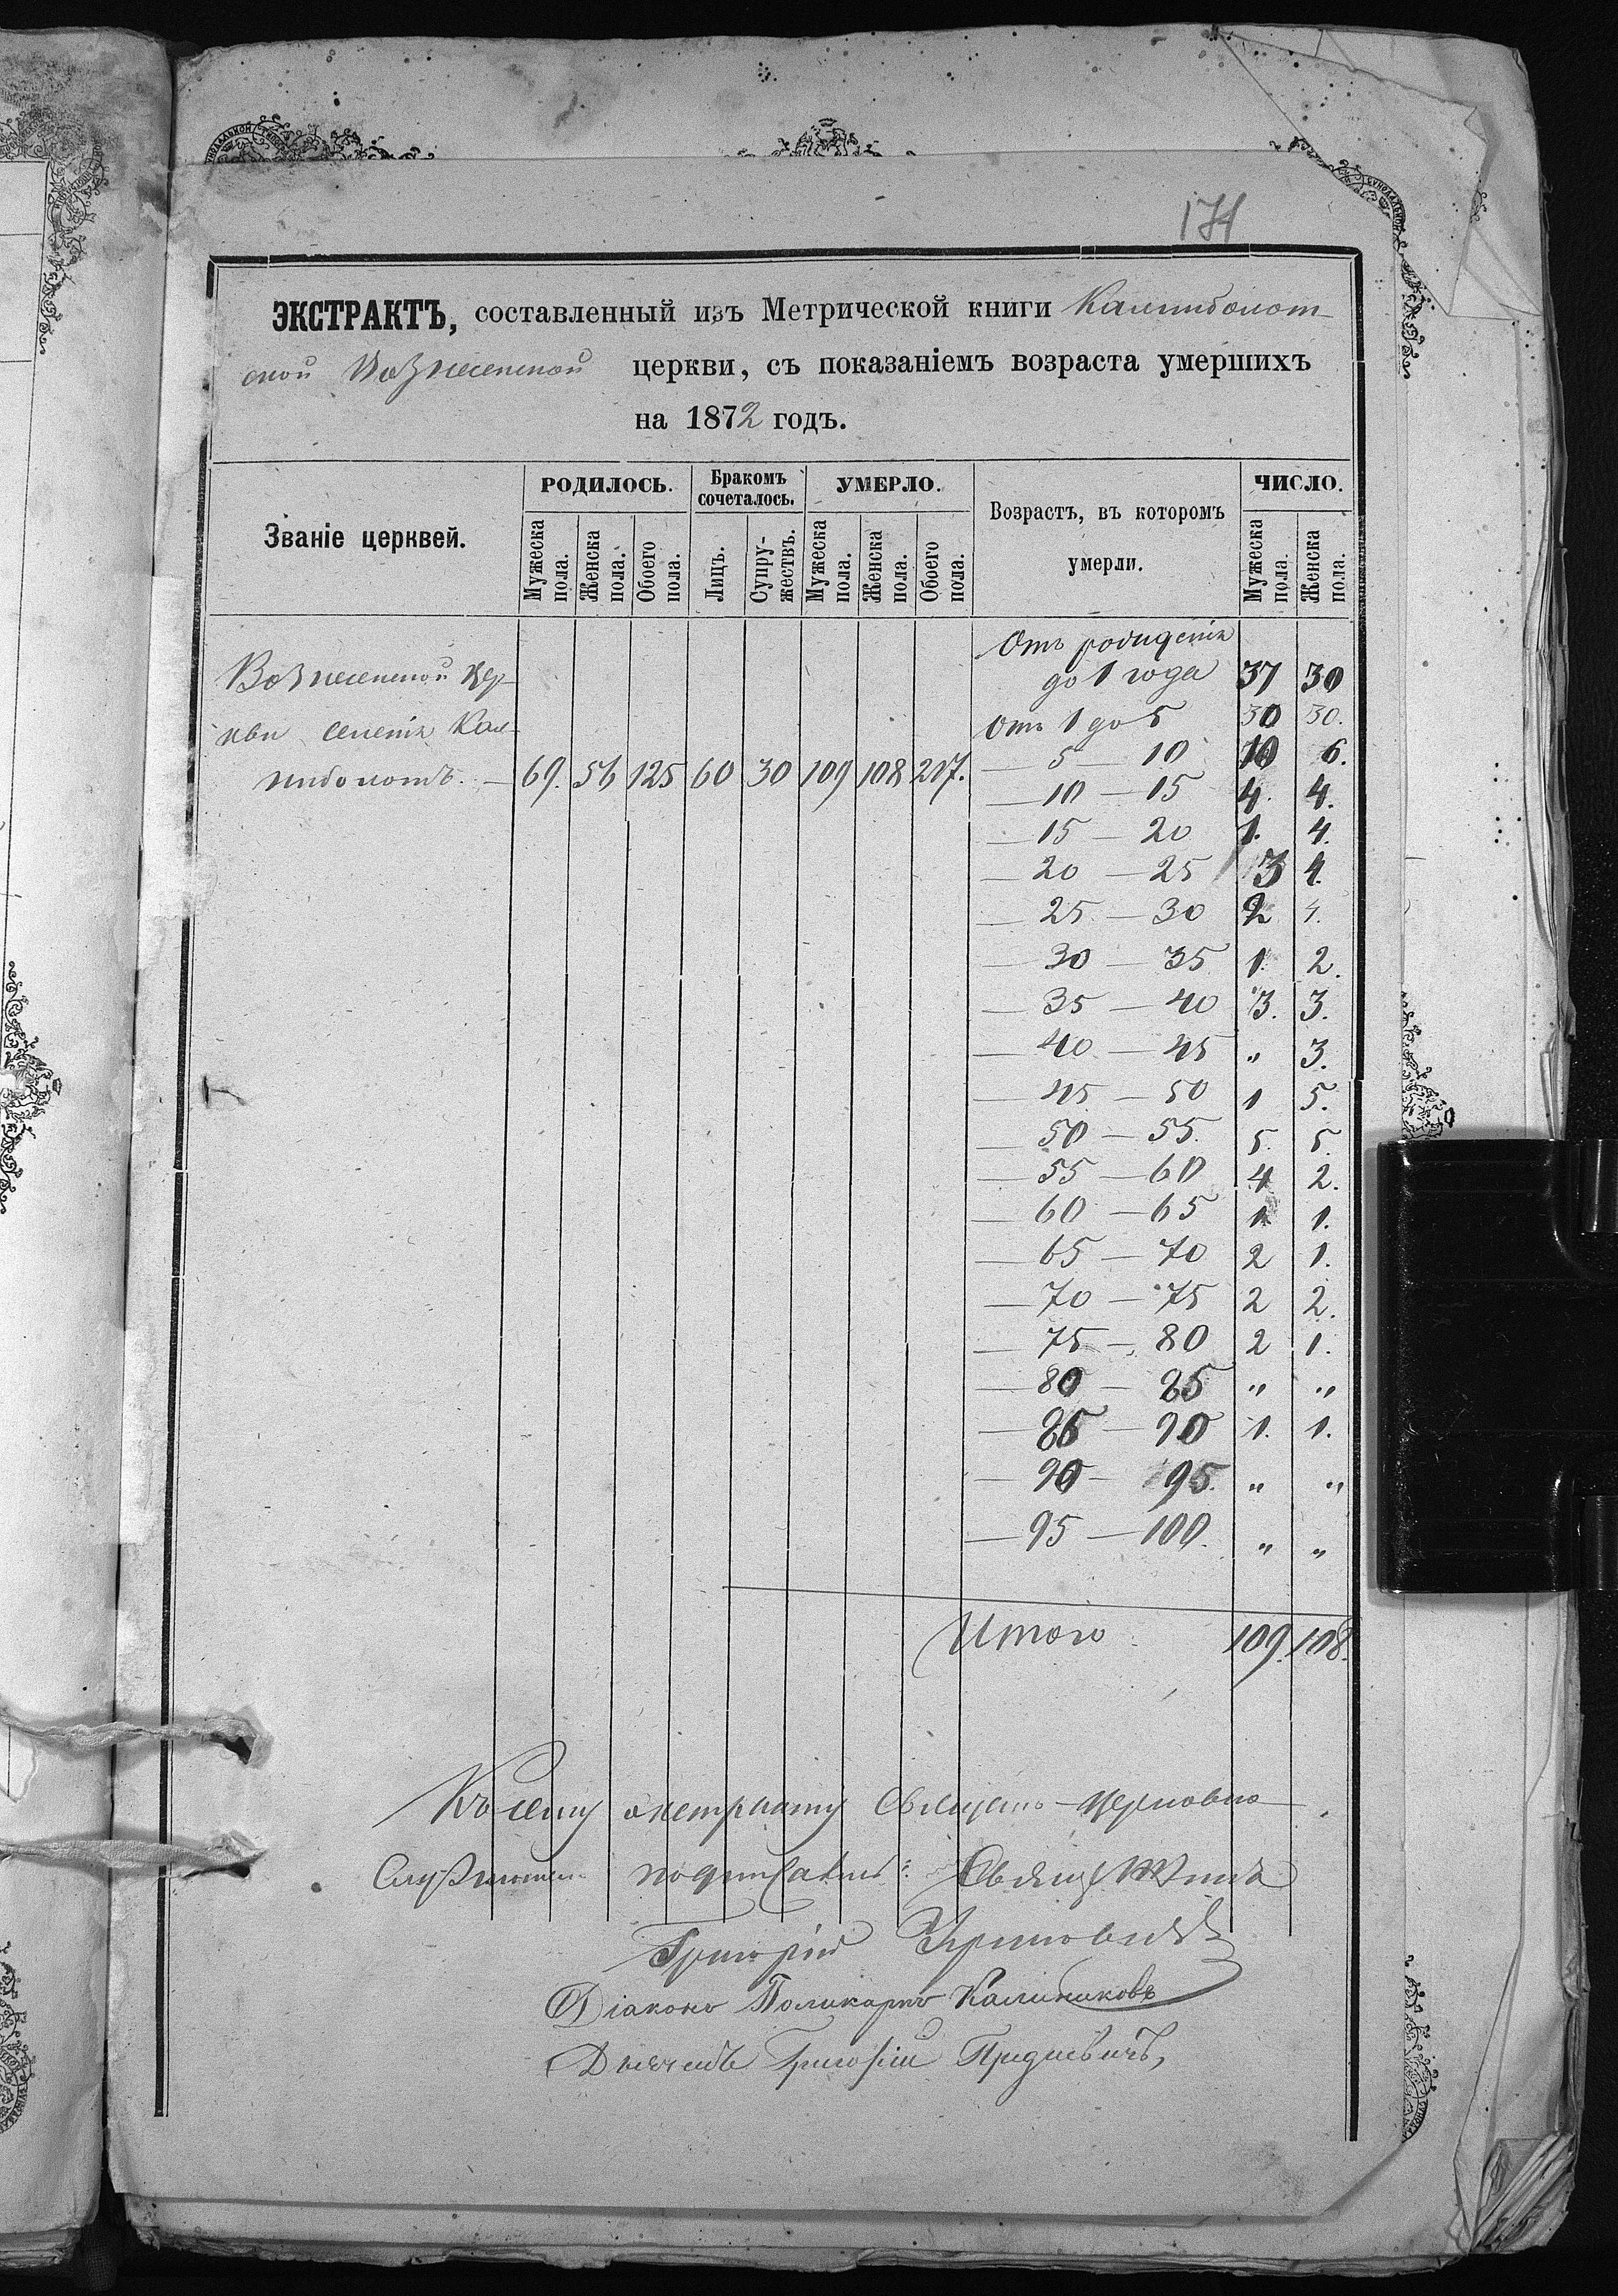 174
ЭКСТРАКТЪ, составленный изъ Метрической книги Калниболот-
ской Вознесенской церкви, съ показаніемъ возраста умершихъ
на 1872 годъ.
Званіе церквей.
РОДИЛОСЬ.
Бракомъ сочеталось.
УМЕРЛО.
Возрастъ, въ которомъ умерли.
ЧИСЛО.
Мужеска пола.
Женска пола.
Обоего пола.
Лицъ.
Супружествъ.
Мужеска пола.
Женска пола.
Обоего пола.
Мужеска пола.
Женска пола.
Вознесенской Цер-
кви селенія Кал-
ниболотъ. — 69. 56 125 60 30 109 108 217.
Отъ рожденія
до 1 года 37 30
Отъ 1 до 5 30 30.
— 5 — 10 10 6.
— 10 — 15 4. 4.
— 15 — 20 1. 4.
— 20 — 25 3 4.
— 25 — 30 2 4.
— 30 — 35 1. 2.
— 35 — 40 3. 3.
— 40 — 45 „ 3.
— 45 — 50 1 5.
— 50 — 55. 5. 5.
— 55 — 60 4 2.
— 60 — 65 1 1.
— 65 — 70 2 1.
— 70 — 75 2 2.
— 75 — 80 2 1.
— 80 — 85 „ „
— 85 — 90 1. 1.
— 90 — 95. „ „
— 95 — 100. „ „
Итого 109. 108.
Къ сему экстракту Священно-церковно-
служители подписались: Священникъ
Григорій
Діаконъ Поликарпъ Калиниковъ
Дьячекъ Григорій